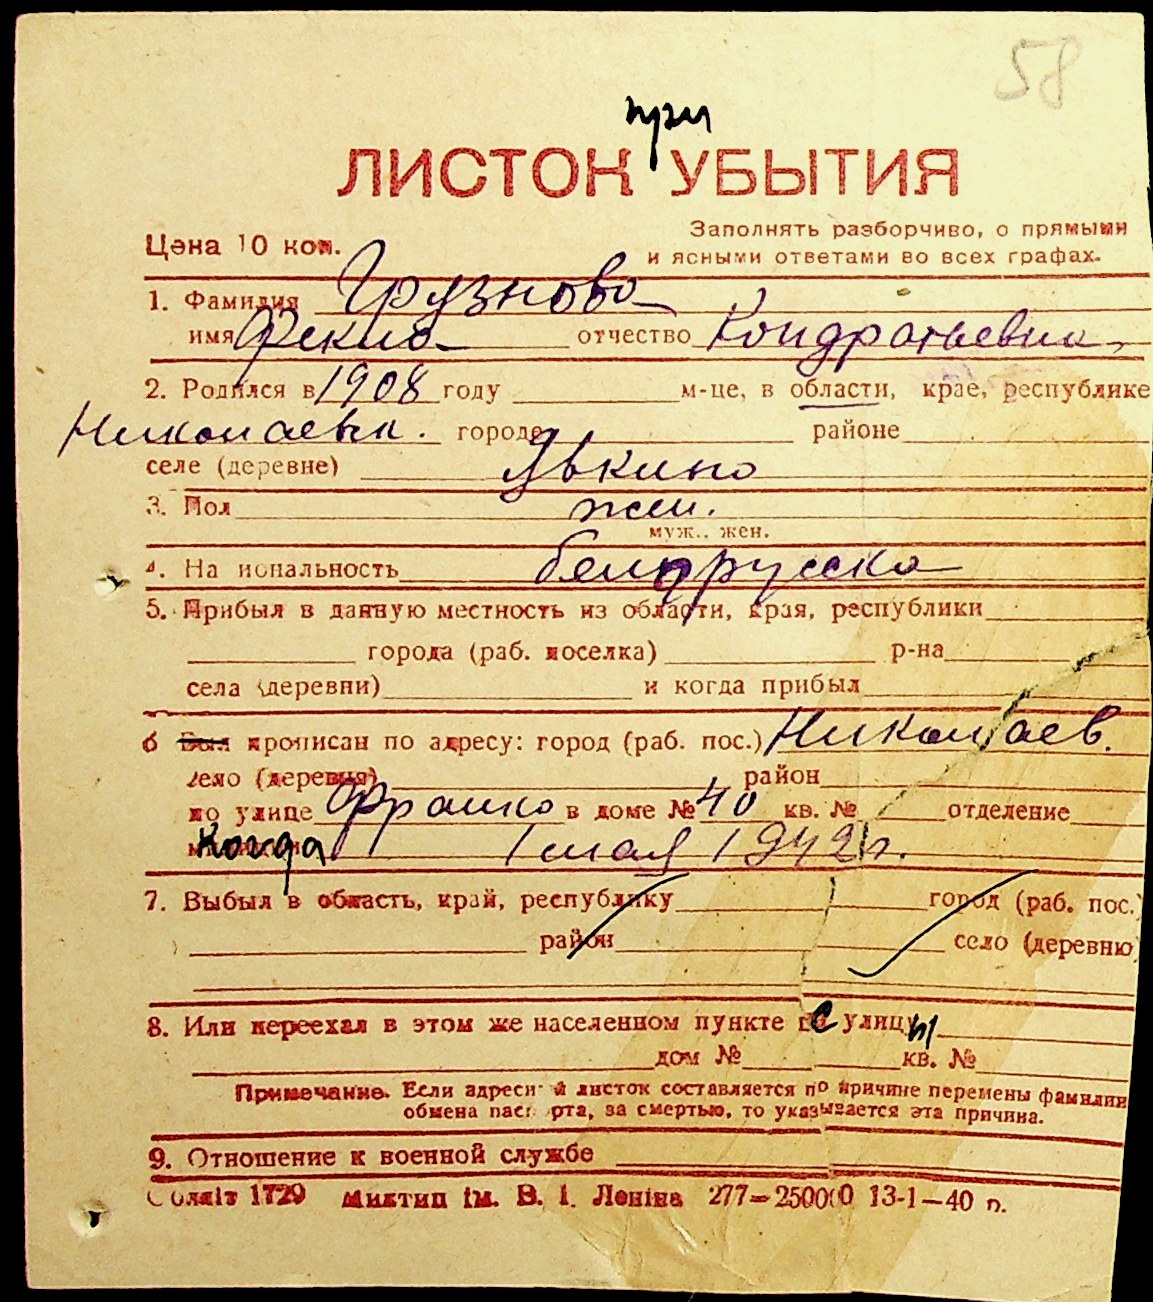 58
при
ЛИСТОК УБЫТИЯ
Цена 10 коп.
Заполнять разборчиво, о прямыми
и ясными ответами во всех графах.
1. Фамилия Грузнова
имя Фекла отчество Кондратьевна
2. Родился в 1908 году м-це, в области, крае, республике
Николаевск. городе районе
селе (деревне) Явкино
3. Пол жен.
муж.. жен.
4. На иональность белорусска
5. Прибыл в данную местность из области, края, республики
города (раб. поселка) р-на
села (деревни) и когда прибыл
6 Был прописан по адресу: город (раб. пос.) Николаев.
село (деревня) район
по улице Франко в доме № 40 кв. № отделение
Когда 1 мая 1942 г.
7. Выбыл в область, край, республику город (раб. пос.)
район село (деревню
8. Или переехал в этом же населенном пункте с улицы
дом № кв. №
Примечание. Если адресный листок составляется по причине перемены фамилии
обмена паспорта, за смертью, то указывается эта причина.
9. Отношение к военной службе
Облліт 1729 Миктип ім. В. І. Леніна 277—250000 13-1—40 п.